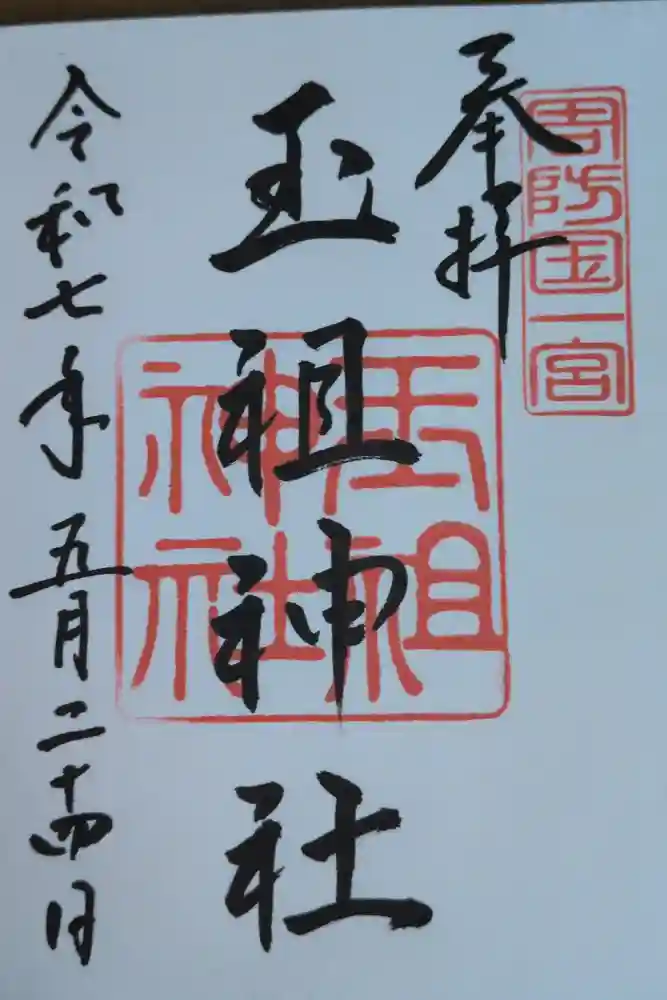 周防国一宮
奉拝
玉祖神社
玉祖神社
令和七年五月二十四日